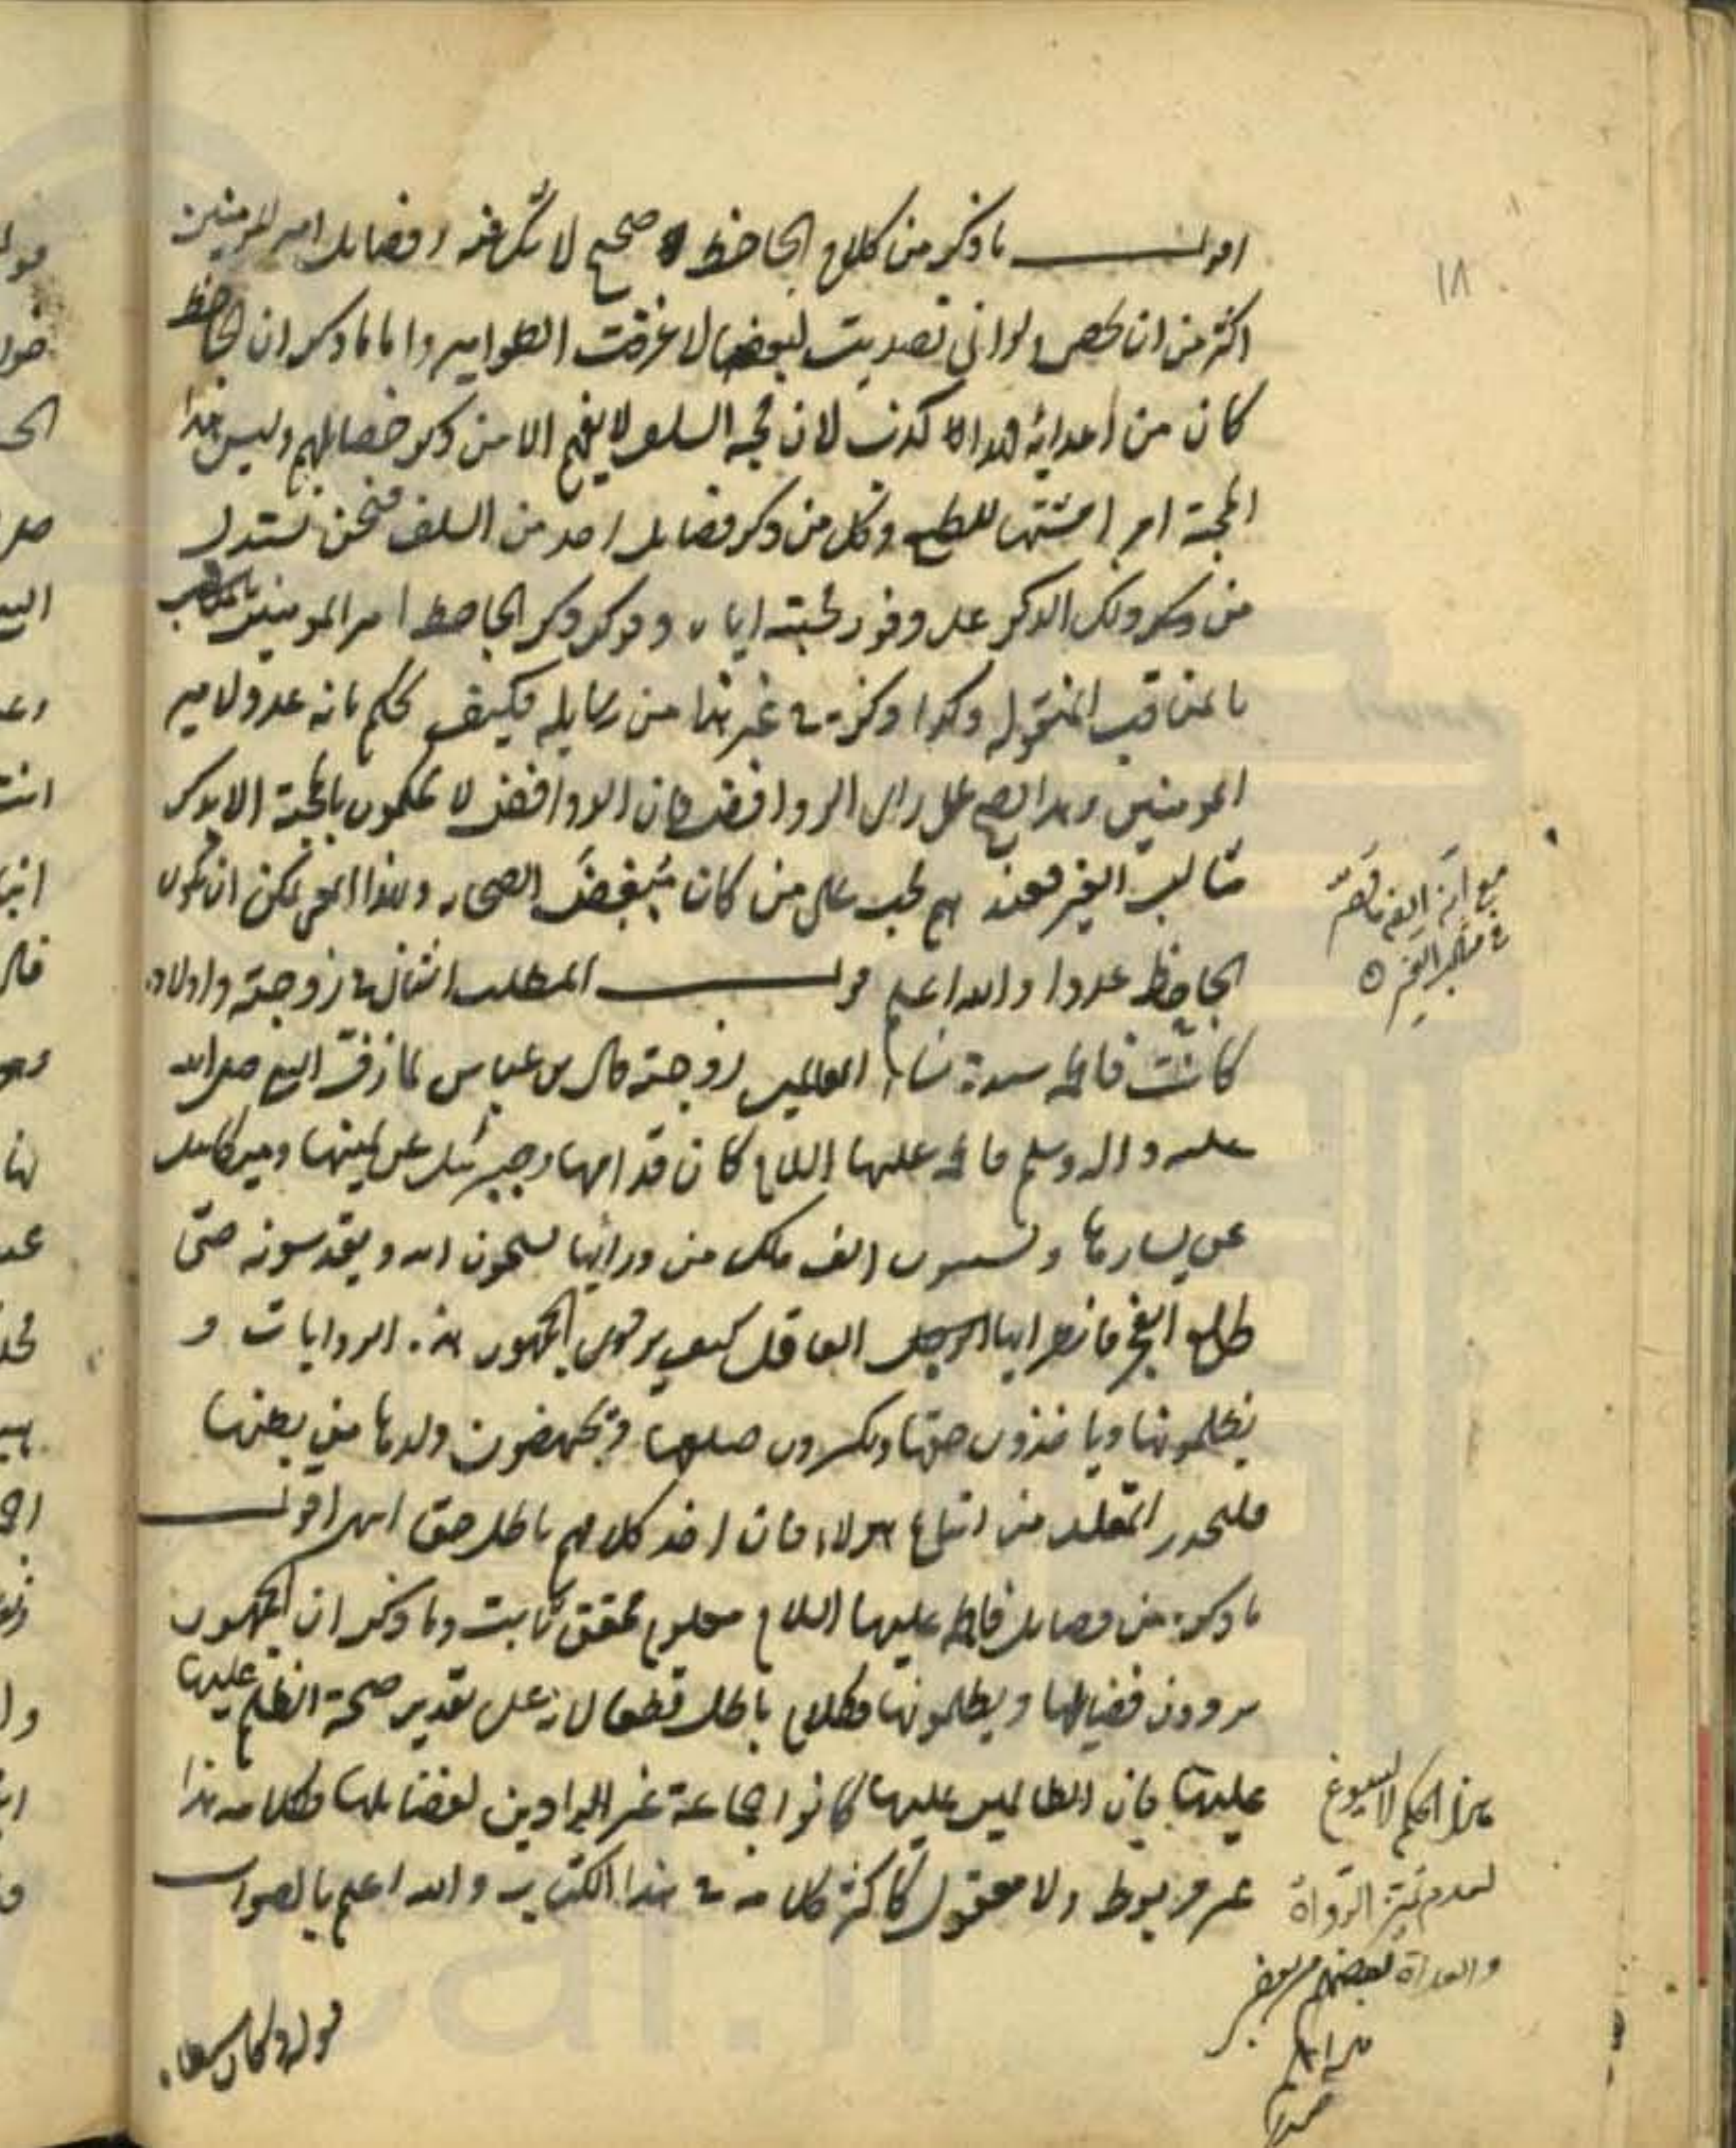 ١٨
اقول ما ذكر من كلام الجاحظ صحيح لا شك فيه وفضايل امير المومنين
اكثر من ان تحصى ولو انى تصديت لبعضها لاغرقت الطوامير واما ما ذكر ان الجاحظ
كان من اعدائه فهذا كذب لان محبة السلف لا يفهم الا من ذكر فضايلهم وليس هذا
المحبة امر امشتها للطبع وكل من ذكر فضايل احد من السلف فنحن نستدل
من ذكر ذلك الذكر على وفور محبته اياه وقد ذكر الجاحظ امير المومنين
بالمناقب المنقوله وكذا ذكره في غير هذا من رسايله فكيف يحكم بانه عدو لامير
المومنين وهذا يصح على راى الروافض فان الروافض لا يحكمون بالمحبة الا بذكر
مثالب الغير فعندهم محب على من كان مبغض الصحابه ولهذا المعنى يمكن ان يكون
الجاحظ عدوا والله اعلم قوله المطلب الثانى في زوجته واولاده
كانت فاطمه سيدة نساء العالمين زوجته قال بن عباس لما زفت النبى صلى الله
عليه واله وسلم فاطمه عليها السلام كان قدامها وجبرئيل عن يمينها وميكائيل
عن يسارها وسبعون الف ملك من ورائها يسبحون الله ويقدسونه حتى
طلع الفجر فانظر ايها الرجل العاقل كيف يروى الجمهور هذه الروايات و
يظلمونها وياخذون حقها ويكسرون ضلعها ويجهضون ولدها من بطنها
فليحذر المقلد من اتباع هولاء فان اخذ كلامهم باطل حق انتهى اقول
ما ذكره من فضايل فاطمه عليها السلام معلوم محقق ثابت وما ذكر ان الجمهور
يروون فضيالها ويظلمونها فكلام باطل قطعا لانه على تقدير صحة الظلم عليها
عليها فان الظالمين عليها كانوا جماعة غير الراوين لفضايلها فكلامه هذا
غير مربوط ولا معقول كاكثر كلامه في هذا الكتاب والله اعلم بالصواب
مع انه ايضا
في مثالب الغير
هذا الحكم لا يسوغ
لعدم تميز الرواة
والعداة بعضهم من بعض
قوله وكان